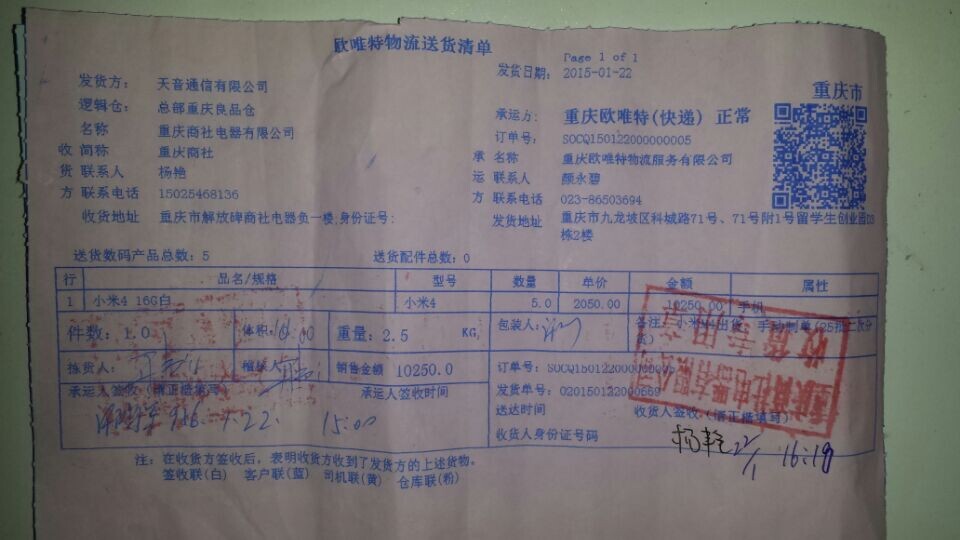 欧唯特物流送货清单
Page 1 of 1
发货日期: 2015-01-22
发货方: 天音通信有限公司
重庆市
逻辑仓: 总部重庆良品仓
承运方: 重庆欧唯特(快递) 正常
名称 重庆商社电器有限公司
订单号: SOCQ150122000000005
收 简称 重庆商社
承 名称 重庆欧唯特物流服务有限公司
货 联系人 杨艳
运 联系人 颜永碧
方 联系电话 15025468136
方 联系电话 023-86503694
收货地址 重庆市解放碑商社电器负一楼,身份证号:
发货地址 重庆市九龙坡区科城路71号、71号附1号留学生创业园D3
栋2楼
送货数码产品总数: 5 送货配件总数: 0
行 品名/规格 型号 数量 单价 金额 属性
1 小米4 16G白 小米4 5.0 2050.00 10250.00 手机
件数: 1.0 体积: 重量: 2.5 KG, 包装人: 备注: 小米4出货 手动制单(25批二次分
货)
拣货人: 稽核人 销售金额 10250.0 订单号: SOCQ150122000000005
发货单号: 020150122000669
承运人签收(请正楷填写) 承运人签收时间
送达时间 收货人签收(请正楷填写)
22 15:00
收货人身份证号码
杨艳 22/1 16:18
注: 在收货方签收后, 表明收货方收到了发货方的上述货物。
签收联(白) 客户联(蓝) 司机联(黄) 仓库联(粉)